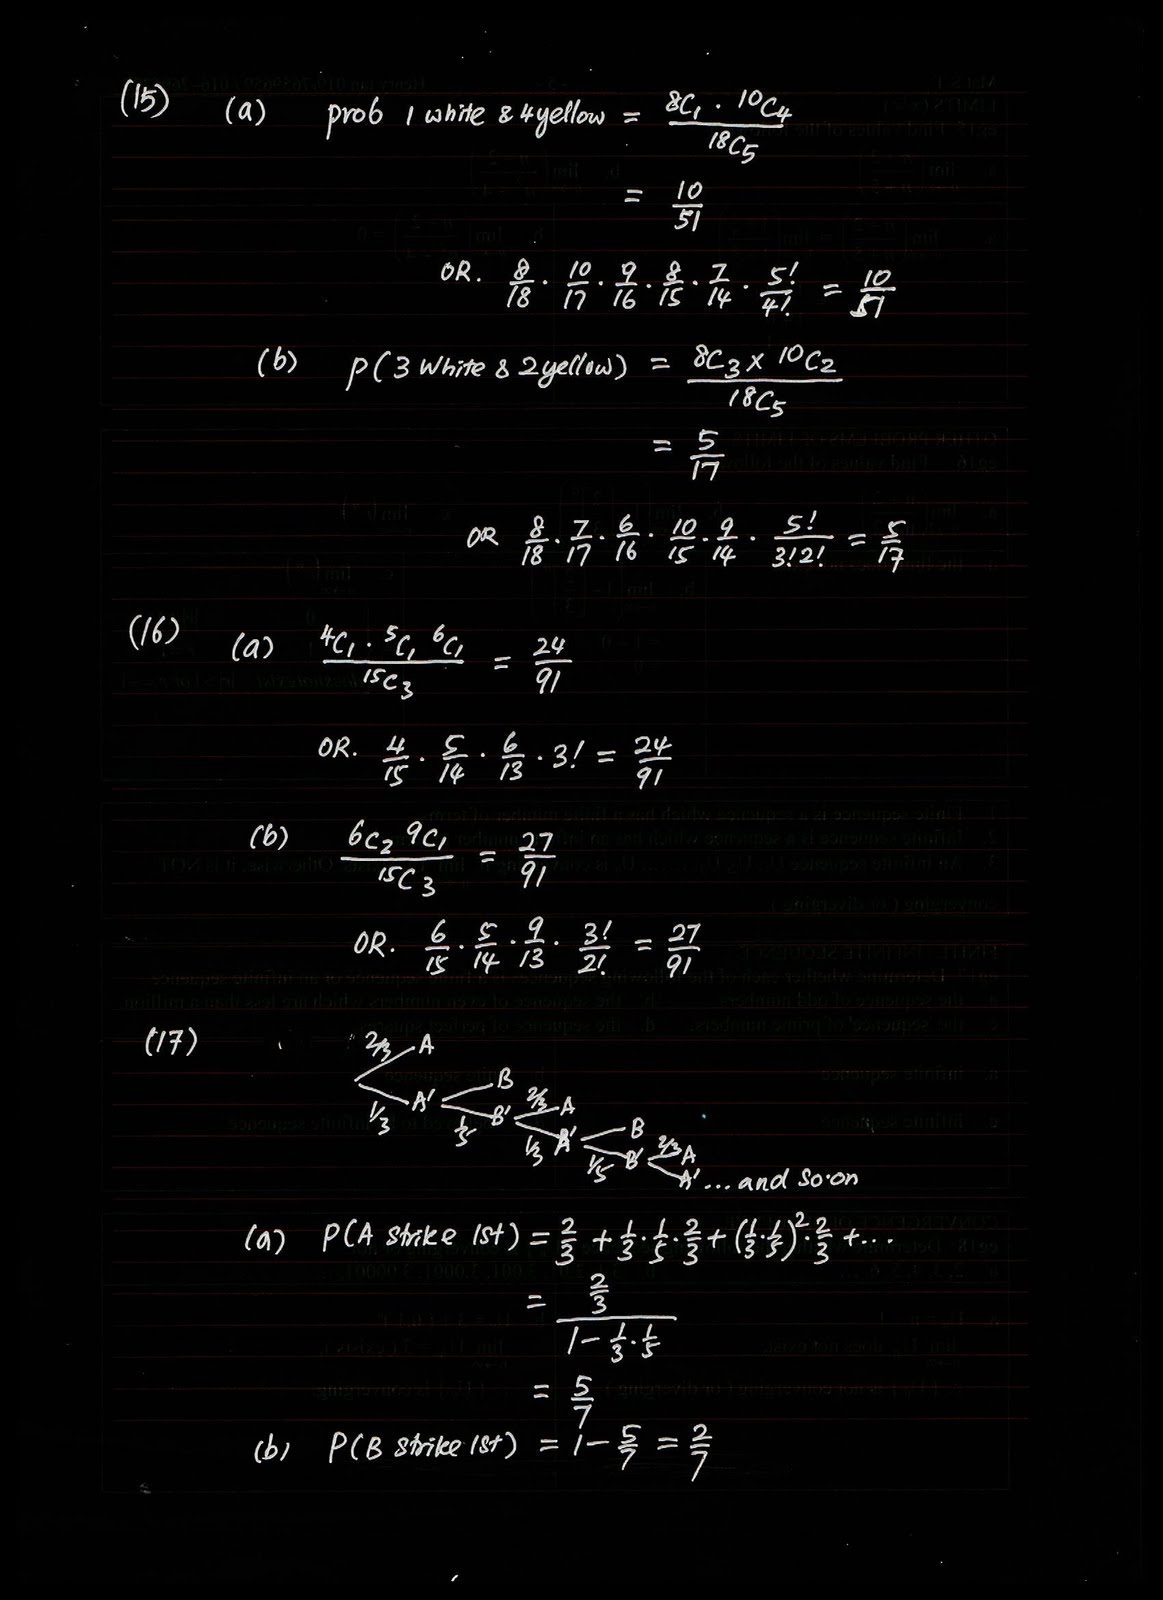 (15) (a) prob 1 white & 4 yellow = 8C1 · 10C4 / 18C5
= 10/51
OR. 8/18 · 10/17 · 9/16 · 8/15 · 7/14 · 5!/4! = 10/51
(b) P(3 white & 2 yellow) = 8C3 x 10C2 / 18C5
= 5/17
OR 8/18 · 7/17 · 6/16 · 10/15 · 9/14 · 5!/3!2! = 5/17
(16) (a) 4C1 · 5C1 6C1 / 15C3 = 24/91
OR. 4/15 · 5/14 · 6/13 · 3! = 24/91
(b) 6C2 9C1 / 15C3 = 27/91
OR. 6/15 · 5/14 · 9/13 · 3!/2! = 27/91
(17) 2/3 A
1/3 A' B
1/5 B' 2/3 A
1/3 A' B
1/5 B' 2/3 A
A' ... and so on
(a) P(A strike 1st) = 2/3 + 1/3 · 1/5 · 2/3 + (1/3 · 1/5)² · 2/3 + ...
= 2/3 / 1 - 1/3 · 1/5
= 5/7
(b) P(B strike 1st) = 1 - 5/7 = 2/7